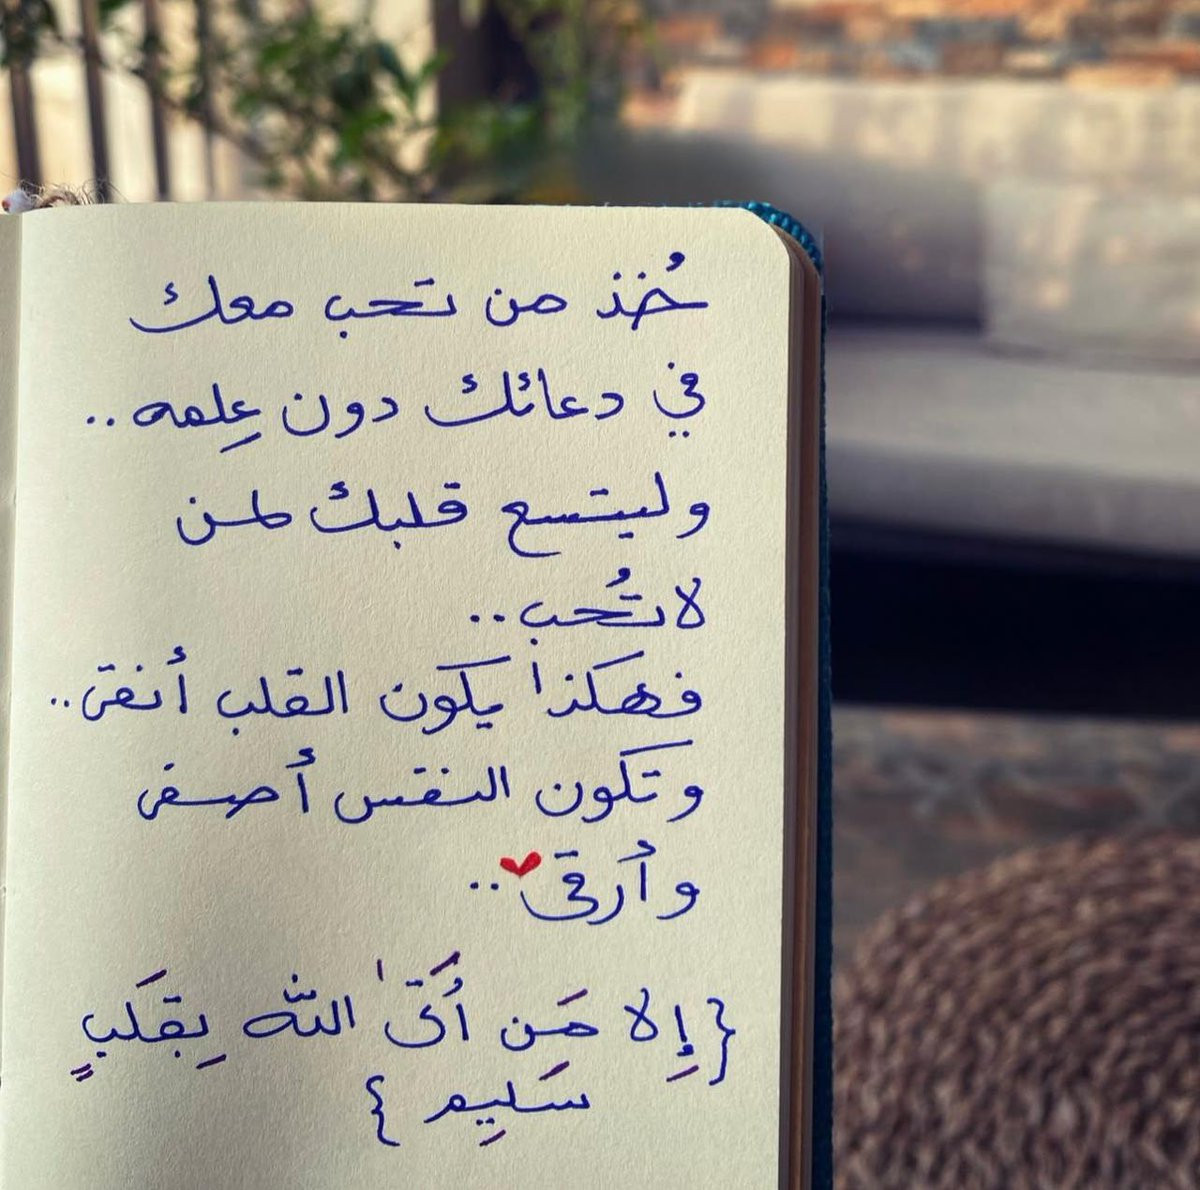 خُذ من تحب معك
في دعائك دون عِلمه ..
وليتسع قلبك لمن
لا تُحب ..
فهكذا يكون القلب أنقى ..
وتكون النفس أصفى
وأرقى ..
{إِلا مَن أَتَى الله بِقَلبٍ
سَلِيم}